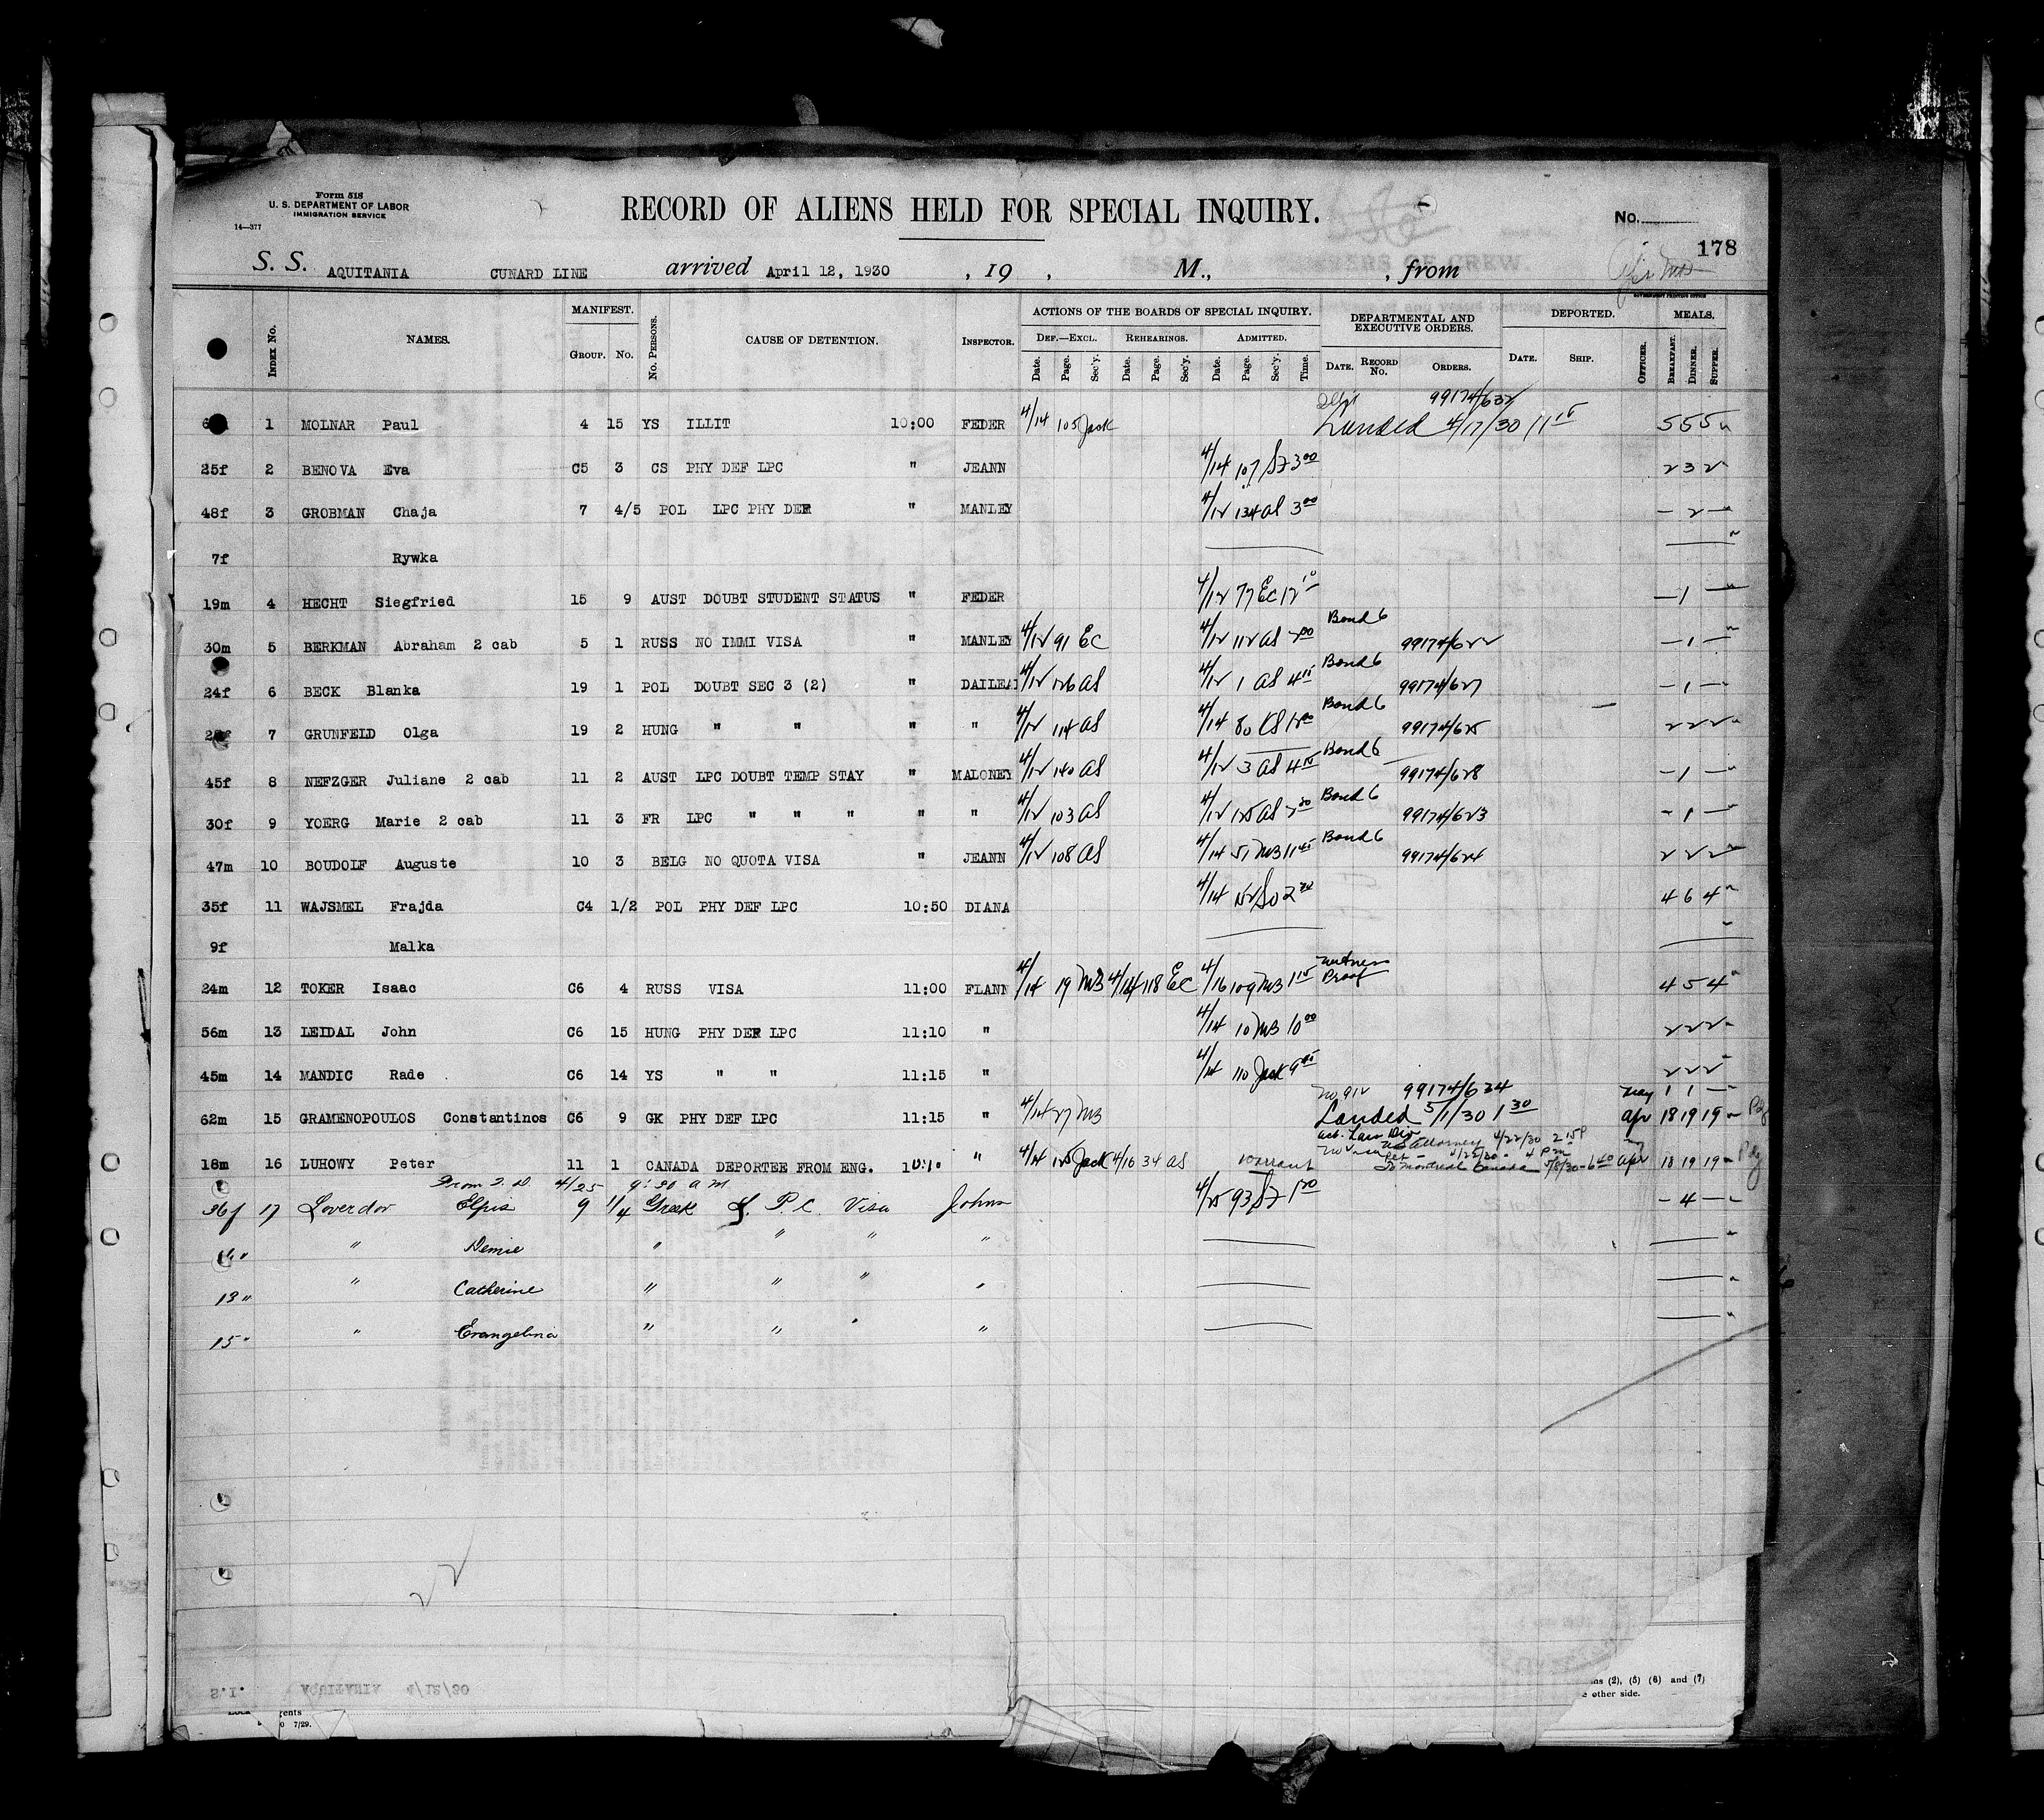 Form 518
U. S. DEPARTMENT OF LABOR
IMMIGRATION SERVICE
14—377
RECORD OF ALIENS HELD FOR SPECIAL INQUIRY.
No.
178
S. S. AQUITANIA CUNARD LINE arrived April 12, 1930 , 19 , M., , from
GOVERNMENT PRINTING OFFICE
Index No. NAMES. MANIFEST. Group. No. No. Persons. CAUSE OF DETENTION. Inspector. ACTIONS OF THE BOARDS OF SPECIAL INQUIRY. DEPARTMENTAL AND EXECUTIVE ORDERS. DEPORTED. MEALS.
Def.—Excl. Rehearings. Admitted.
Date. Page. Sec'y. Date. Page. Sec'y. Date. Page. Sec'y. Time. Date. Record No. Orders. Date. Ship. Officer. Breakfast. Dinner. Supper.
99174/632
1 MOLNAR Paul 4 15 YS ILLIT 10:00 FEDER 4/14 105 Jack Landed 4/17/30 11 15 5 5 5
25f 2 BENOVA Eva C5 3 CS PHY DEF LPC " JEANN 4/14 107 3 00 2 3 2
48f 3 GROBMAN Chaja 7 4/5 POL LPC PHY DEF " MANLEY 4/12 134 AS 3 00 — 2 —
7f Rywka
19m 4 HECHT Siegfried 15 9 AUST DOUBT STUDENT STATUS " FEDER 4/12 77 EC 12 10 — 1 —
30m 5 BERKMAN Abraham 2 cab 5 1 RUSS NO IMMI VISA " MANLEY 4/12 91 EC 4/12 112 AS Bond 6 99174/622 — 1 —
24f 6 BECK Blanka 19 1 POL DOUBT SEC 3 (2) " DAILEA 4/12 126 AS 4/12 1 AS 4 15 Bond 6 99174/627 — 1 —
7 GRUNFELD Olga 19 2 HUNG " " " " 4/12 114 AS 4/14 80 Bond 6 99174/625 2 2 2
45f 8 NEFZGER Juliane 2 cab 11 2 AUST LPC DOUBT TEMP STAY " MALONEY 4/12 140 AS 4/12 3 AS 4 15 Bond 6 99174/628 — 1 —
30f 9 YOERG Marie 2 cab 11 3 FR LPC " " " " " 4/12 103 AS 4/12 125 AS Bond 6 99174/623 — 1 —
47m 10 BOUDOLF Auguste 10 3 BELG NO QUOTA VISA " JEANN 4/12 108 AS 4/14 51 MB 11 45 Bond 6 99174/624 2 2 2
35f 11 WAJSMEL Frajda C4 1/2 POL PHY DEF LPC 10:50 DIANA 4/14 4 6 4
9f Malka
24m 12 TOKER Isaac C6 4 RUSS VISA 11:00 FLANN 4/14 19 MB 4/14 118 EC 4/16 109 MB 1 15 Witness Proof 4 5 4
56m 13 LEIDAL John C6 15 HUNG PHY DEF LPC 11:10 " 4/14 10 MB 10 00 2 2 2
45m 14 MANDIC Rade C6 14 YS " " 11:15 " 4/14 110 Jack 9 45 2 2 2
99174/634 May 1 1 —
62m 15 GRAMENOPOULOS Constantinos C6 9 GK PHY DEF LPC 11:15 " 4/14 27 MB Landed 5/1/30 1 30 Apr 18 19 19
Law Div Attorney 4/22/30 2 15 P
18m 16 LUHOWY Peter 11 1 CANADA DEPORTEE FROM ENG. " 4/14 125 Jack 4/16 34 AS warrant To Montreal Canada 5/8/30 - 6 40 Apr 18 19 19
From 4/25 9:30 a m
36f 17 Loverdov Elpis 9 1/4 Greek L. P. C. Visa Johns 4/25 93 1 20 — 4 —
" Demie " " " "
13 " " Catherine " " " "
15 " " Evangelina " " " "
S.I. AQUITANIA 4/12/30
ns (2), (5) (6) and (7)
e other side.
7/29.